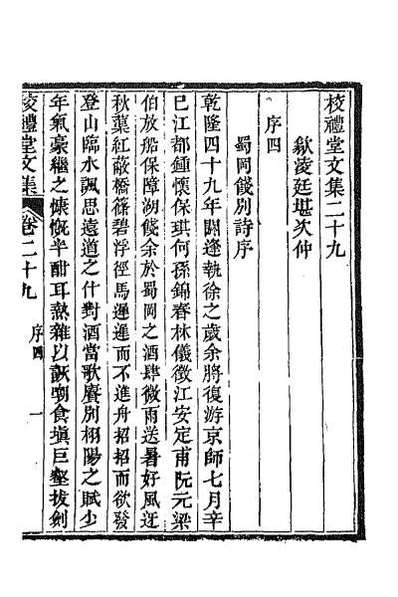 校禮堂文集二十九
歙淩廷堪次仲
序四
蜀岡餞別詩序
乾隆四十九年閼逢執徐之歲余將復游京師七月辛
巳江都鍾懷保琪何孫錦春林儀徵江安定甫阮元梁
伯放船保障湖餞余於蜀岡之酒肆微雨送暑好風迓
秋蕖紅蔽橋篠碧浮徑馬遲遲而不進舟招招而欲發
登山臨水諷思遠道之什對酒當歌賡別栩陽之賦少
年氣豪繼之慷慨半酣耳熱雜以諔嘲食塡巨壑拔劍
校禮堂文集
卷二十九
序四
一